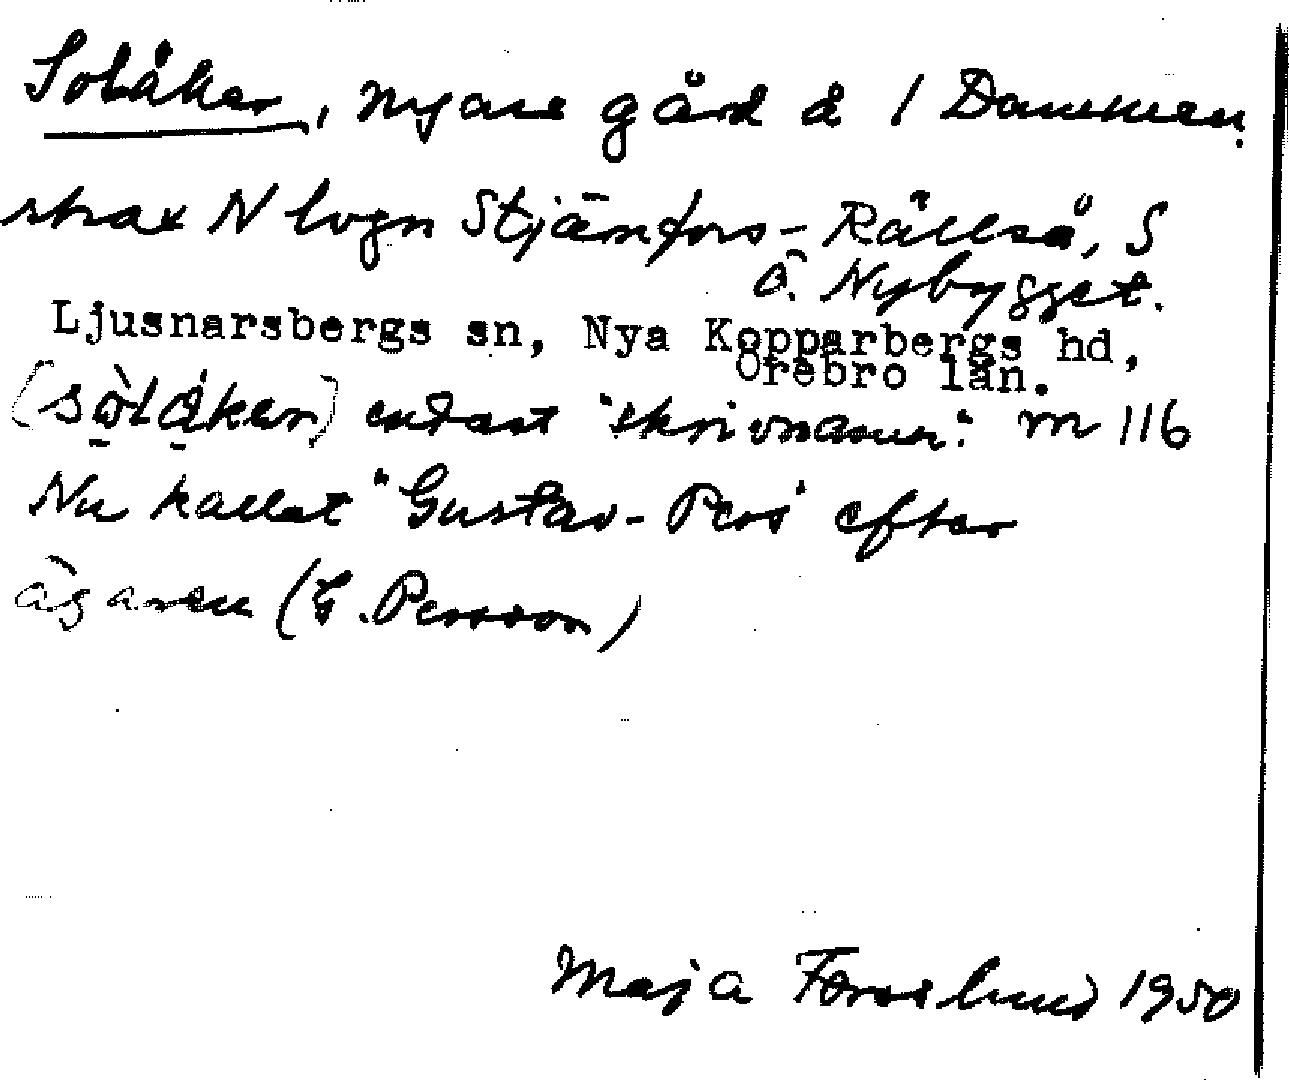 Solåker, nyare gård å 1 Dammen.
strax N lvgn Stjärnfors-Rällså, S
ö. Nybygget.
Ljusnarsbergs sn, Nya Kopparbergs hd,
Örebro län.
(sòlåker) endast "skrivnamn". m 116
Nu kallat "Gustav-Pers" efter
ägaren (G. Persson)
Maja Forslund 1950